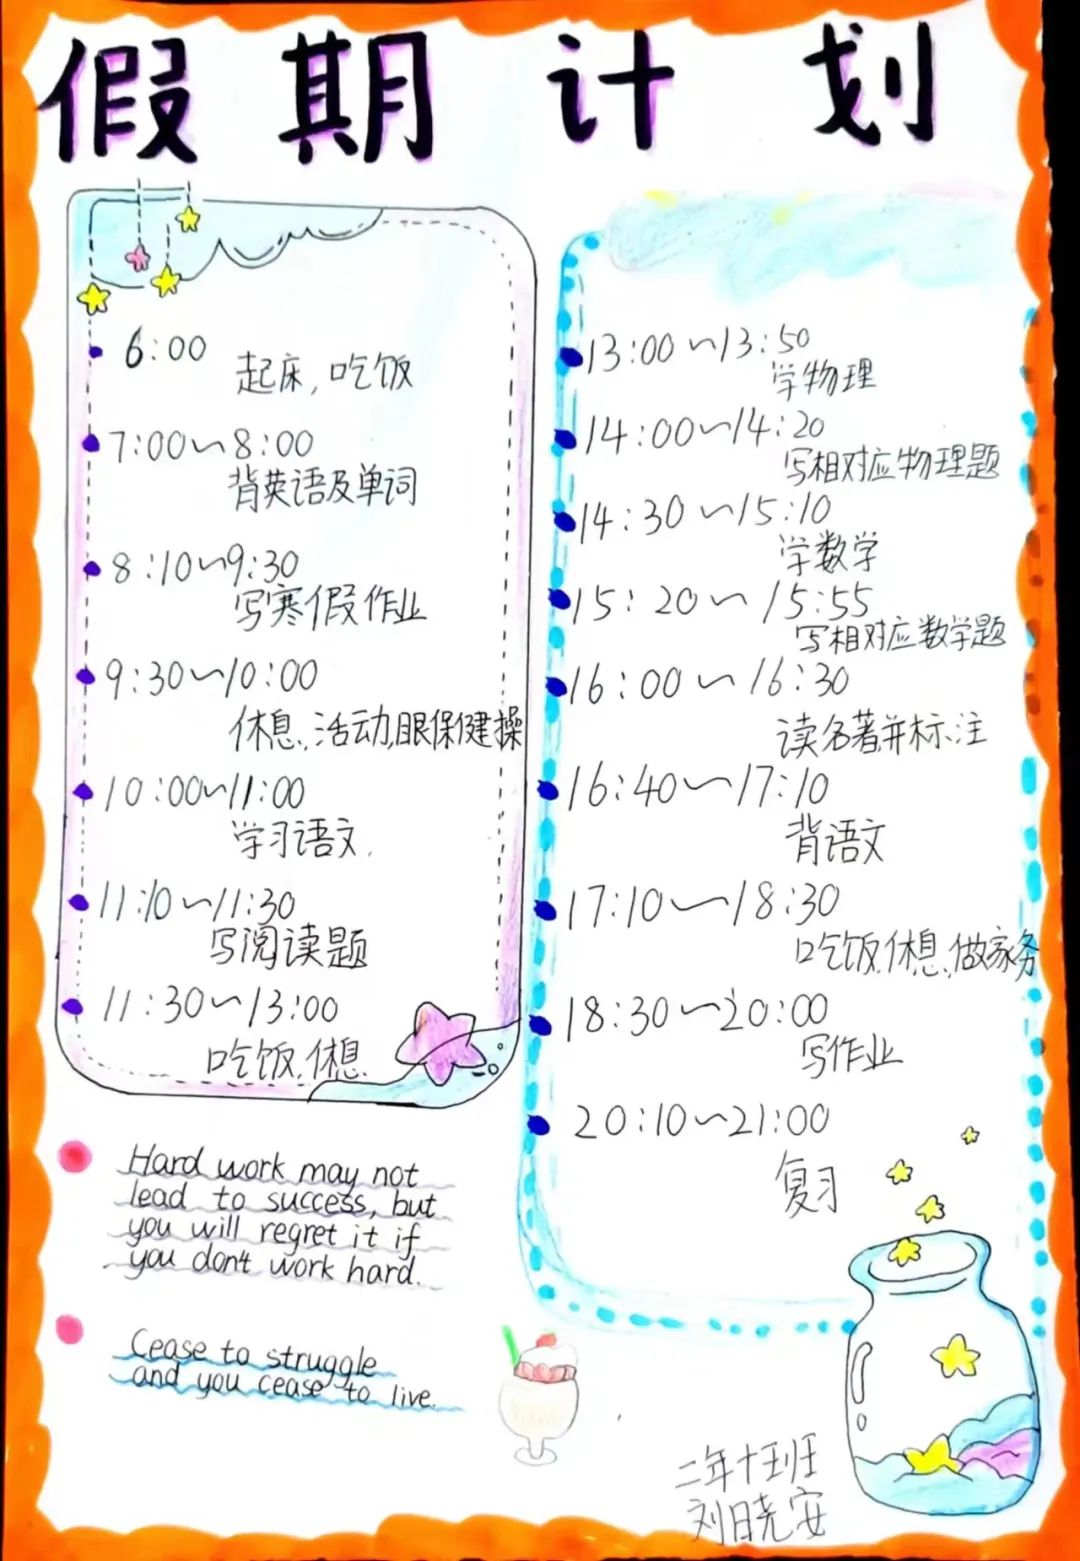 假期计划
6:00
起床,吃饭
7:00~8:00
背英语及单词
8:10~9:30
写寒假作业
9:30~10:00
休息,活动,眼保健操
10:00~11:00
学习语文.
11:10~11:30
写阅读题
11:30~13:00
吃饭,休息.
Hard work may not
lead to success, but
you will regret it if
you don't work hard.
Cease to struggle
and you cease to live.
13:00~13:50
学物理
14:00~14:20
写相对应物理题
14:30~15:10
学数学
15:20~15:55
写相对应数学题
16:00~16:30
读名著,并标注
16:40~17:10
背语文
17:10~18:30
吃饭,休息,做家务
18:30~20:00
写作业
20:10~21:00
复习
二年十班
刘晓安